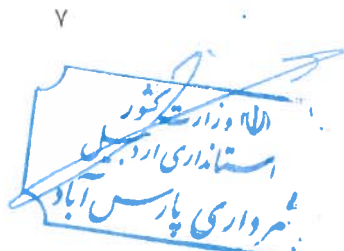 ۷
وزارت کشور
استانداری اردبیل
شهرداری پارس آباد